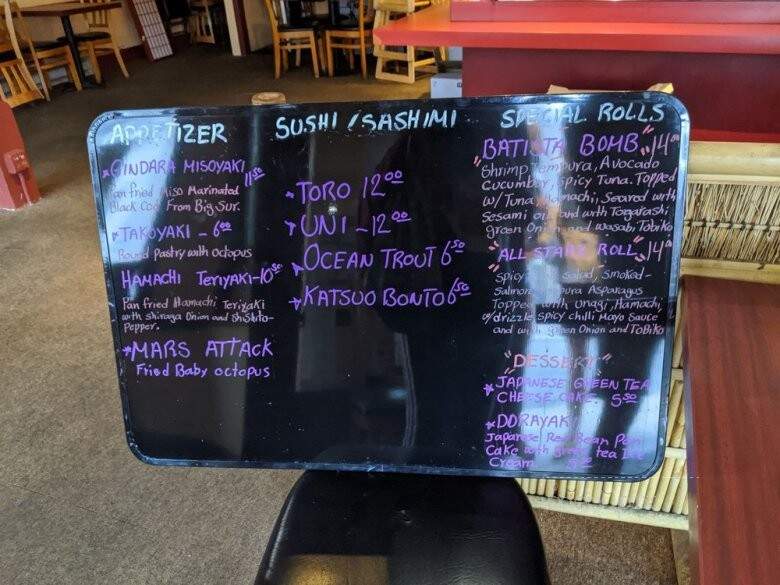 APPETIZER
*GINDARA MISOYAKI 11⁵⁰
Pan fried Miso Marinated
Black Cod From Big Sur.
*TAKOYAKI - 6⁰⁰
Round Pastry with octopus
HAMACHI TERIYAKI-10⁵⁰
Pan fried Hamachi Teriyaki
with shiraga Onion and Shishito-
Pepper.
*MARS ATTACK
Fried Baby octopus
SUSHI / SASHIMI
*TORO 12⁰⁰
*UNI - 12⁰⁰
*OCEAN TROUT 6⁵⁰
*KATSUO BONTO 6⁵⁰
SPECIAL ROLLS
BATISTA BOMB 14⁰⁰
"Shrimp Tempura, Avocado
Cucumber, Spicy Tuna. Topped
w/ Tuna, Hamachi, Seared with
Sesami oil and with Togarashi
green Onion and wasabi, Tobiko"
"ALL STARS ROLL" 14⁰⁰
Spicy Salad, Smoked-
Salmon Asparagus
Topped with Unagi, Hamachi,
w/drizzle spicy chilli Mayo Sauce
and with green Onion and Tobiko
"DESSERT"
*JAPANESE GREEN TEA
CHEESE CAKE 5⁵⁰
*DORAYAKI
Japanese Red Bean Pan
Cake with green tea Ice
Cream